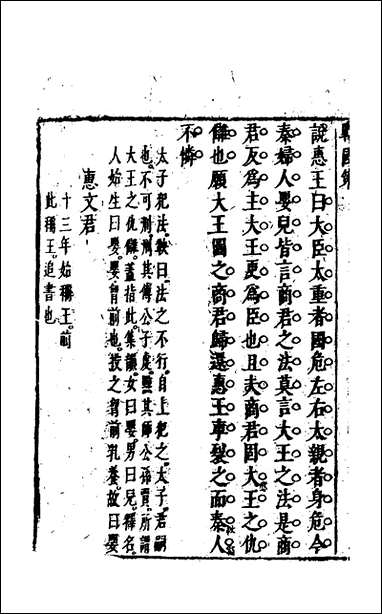 戰國策
說惠王曰大臣太重者國危左右太親者身危今
秦婦人嬰兒皆言商君之法莫言大王之法是商
君反為主大王更為臣也且夫商君固大王之仇
讎也願大王圖之商君歸還惠王車裂之而秦人
不憐
太子犯法鞅曰法之不行自上犯之太子君嗣
也不可刑刑其傅公子虔黥其師公孫賈所謂
大王之仇讎蓋指此集韻女曰嬰男曰兒釋名
人始生曰嬰嬰胷前也投之胷前乳養故曰嬰
惠文君
十三年始稱王前
此稱王追書也